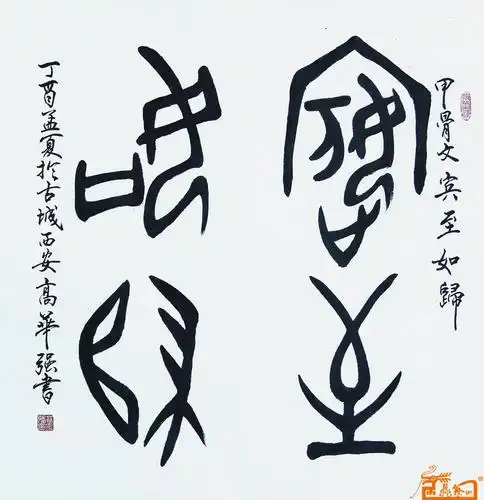 甲骨文宾至如歸
賓至
如歸
丁酉孟夏於古城西安高華强書